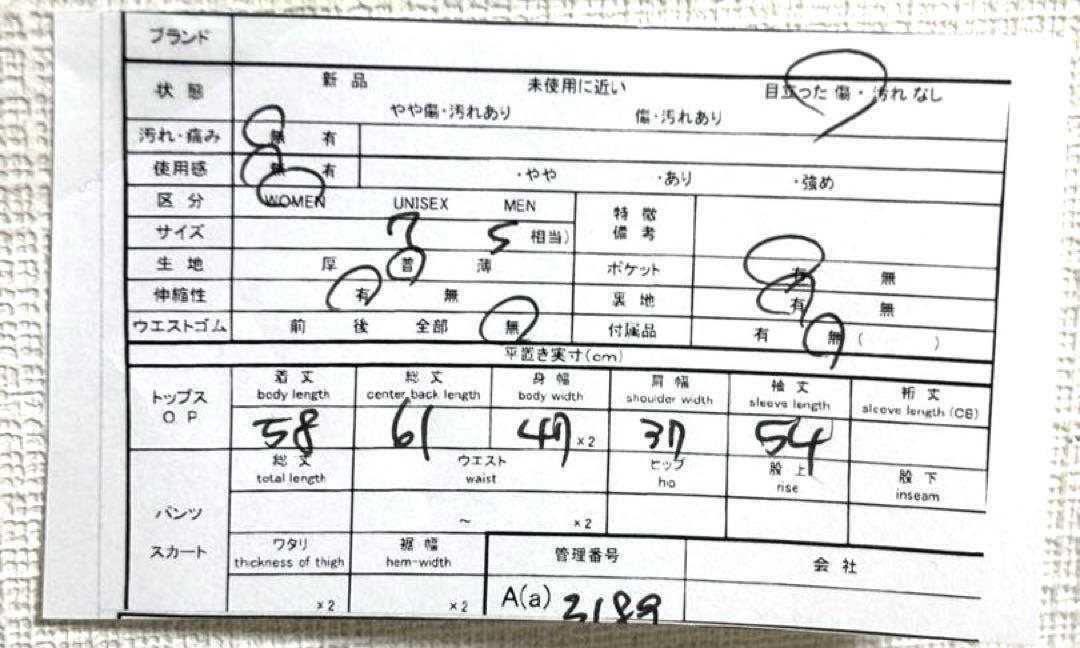 ブランド
状態 新品 未使用に近い 目立った傷・汚れなし
やや傷・汚れあり 傷・汚れあり
汚れ・痛み 無 有
使用感 無 有 ・やや ・あり ・強め
区分 WOMEN UNISEX MEN 特徴備考
サイズ 7 5 相当)
生地 厚 普 薄 ポケット 有 無
伸縮性 有 無 裏地 有 無
ウエストゴム 前 後 全部 無 付属品 有 無 ( )
平置き実寸(cm)
トップス OP
着丈 総丈 身幅 肩幅 袖丈 裄丈
body length center back length body width shoulder width sleeve length sleeve length (CB)
58 61 47 ×2 37 54
総丈 ウエスト ヒップ 股上 股下
total length waist hip rise inseam
パンツ ~ ×2
スカート ワタリ 裾幅 管理番号 会社
thickness of thigh hem-width
×2 ×2 A(a) 3189